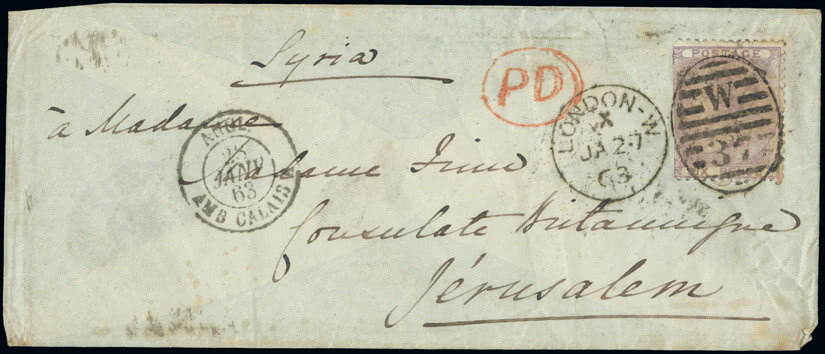 Syria
PD
POSTAGE
LONDON-W
X
JA 27
63
W
37
à Madame
ANGL.
28
JANV
63
AMB CALAIS
Madame Finn
Consulate Britannique
Jérusalem